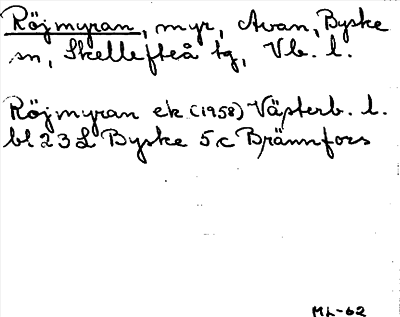 Röjmyran, myr, Avan, Byske
sn, Skellefteå tg, Vb. l.
Röjmyran ek (1958) Västerb. l.
bl 23 L Byske 5 c Brännfors
ML-62